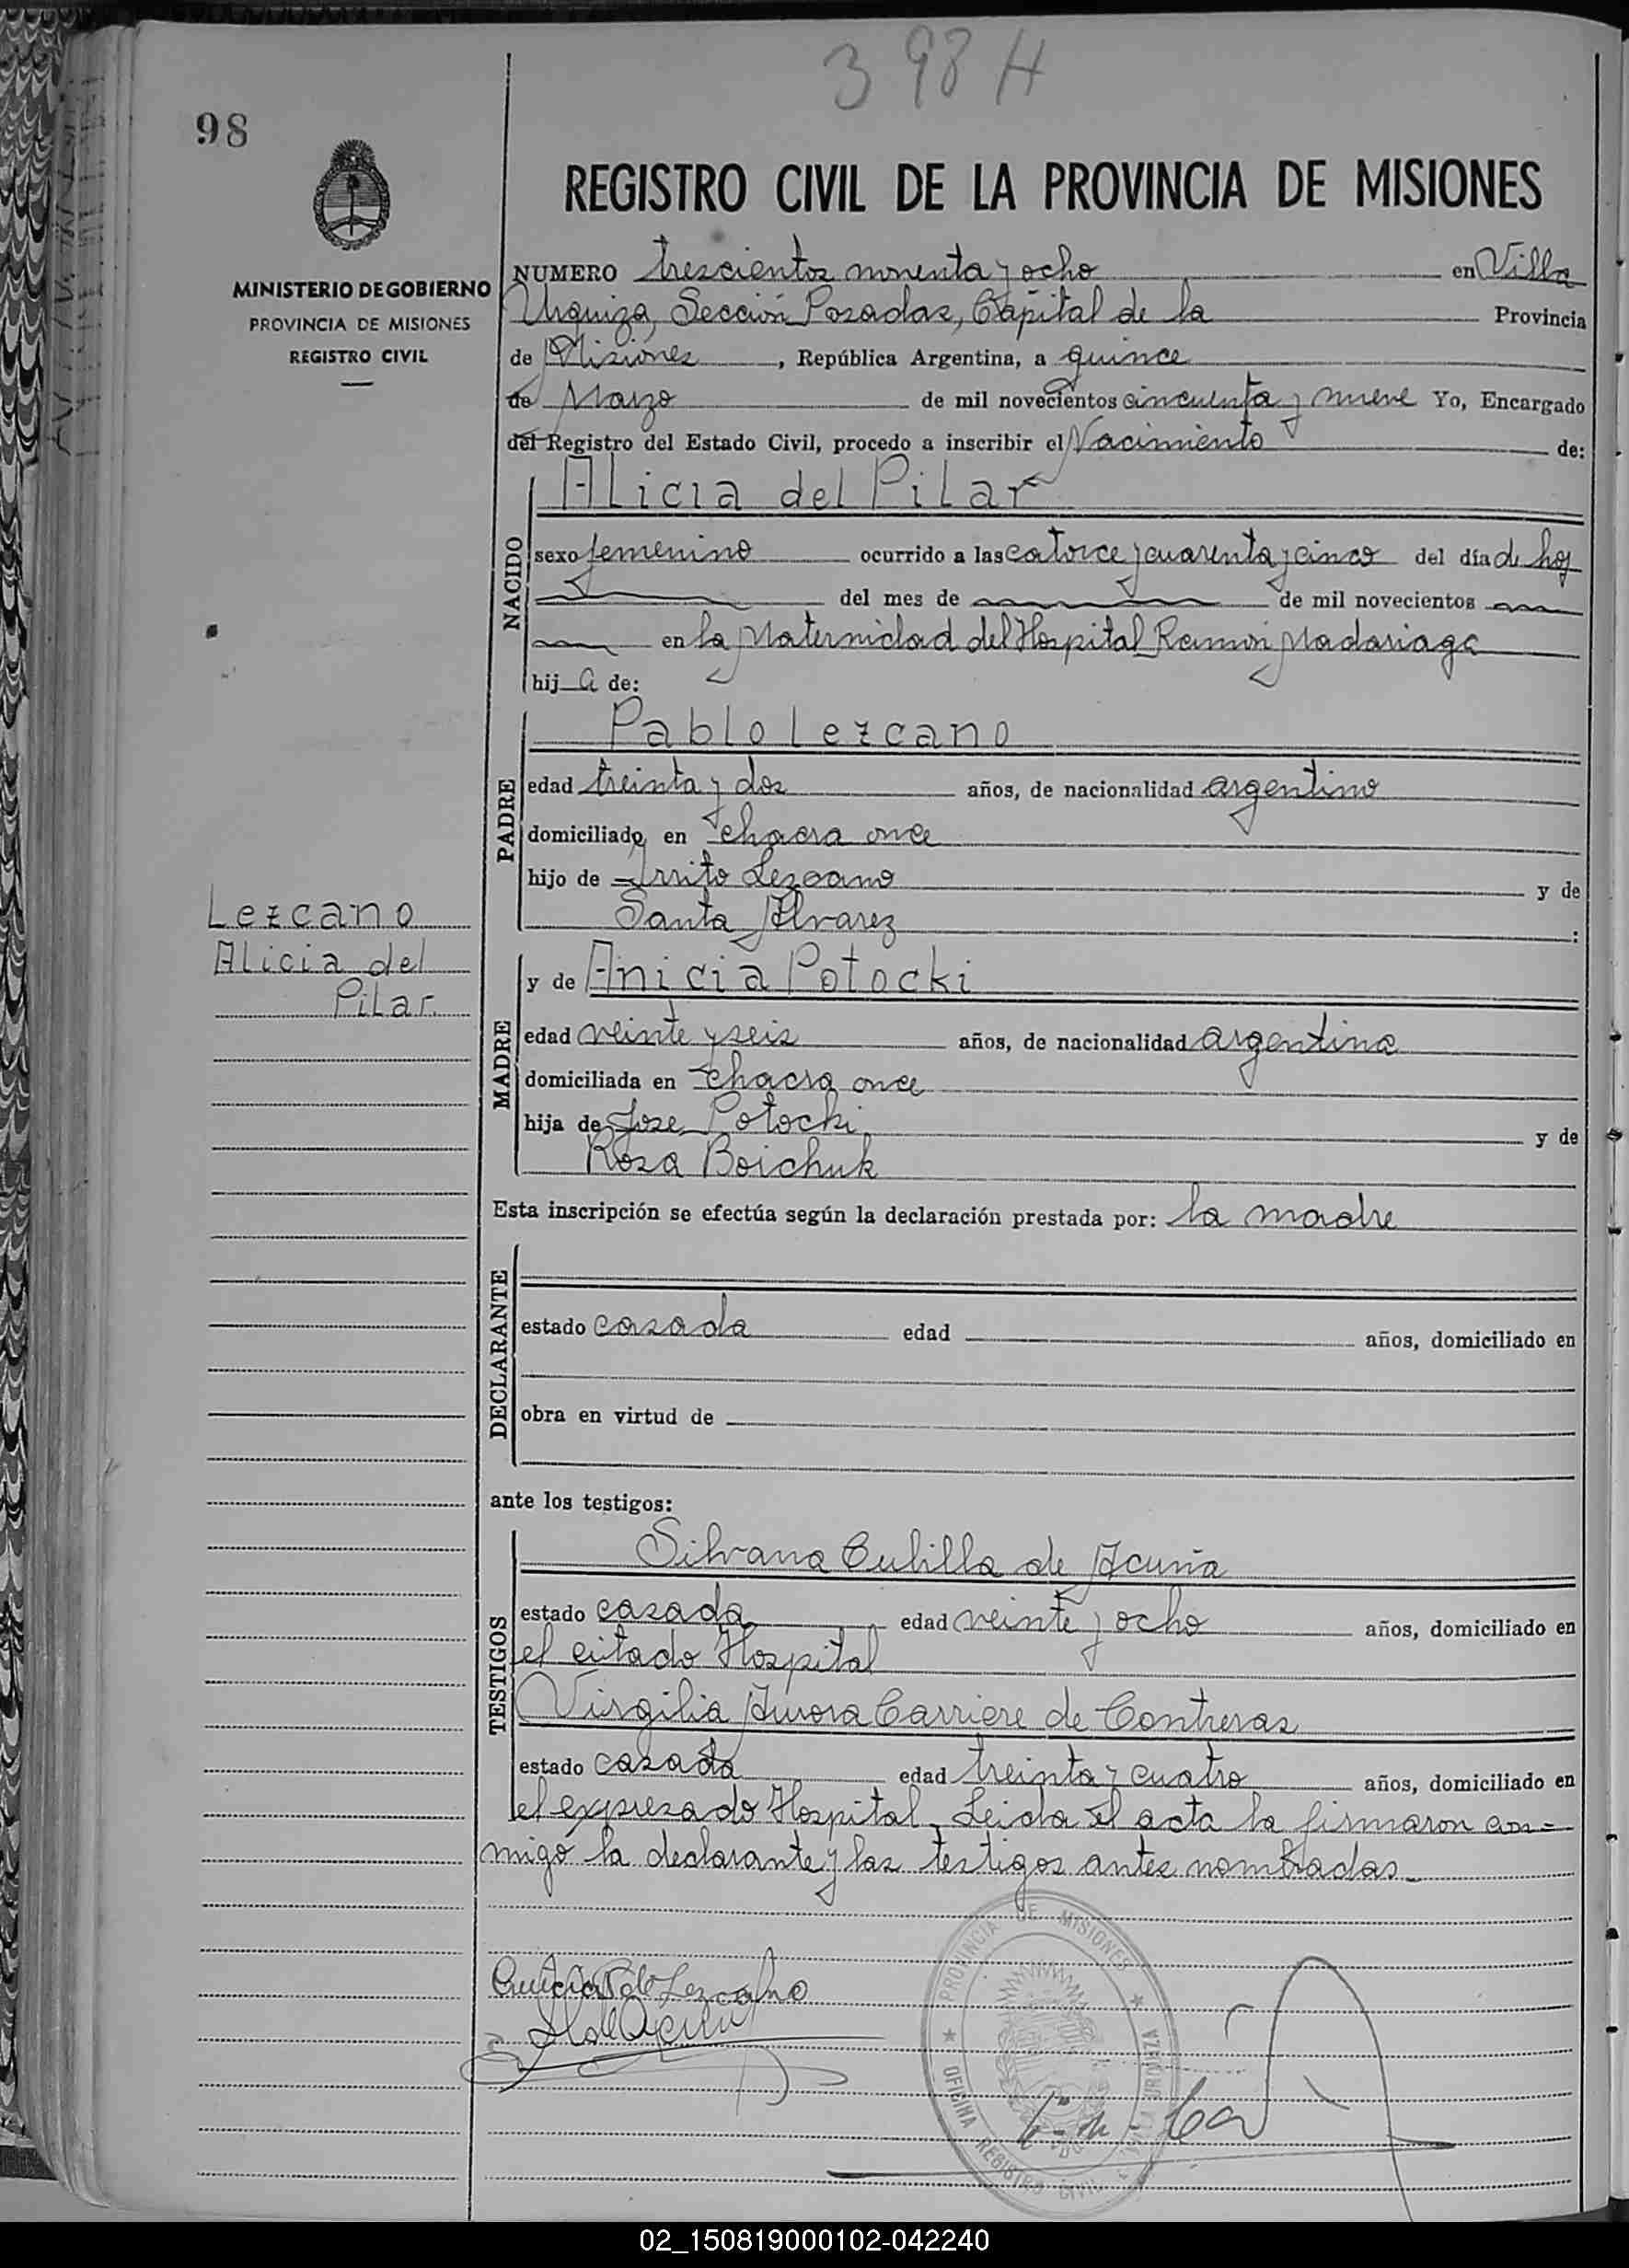 3 98 H
98
REGISTRO CIVIL DE LA PROVINCIA DE MISIONES
MINISTERIO DE GOBIERNO
PROVINCIA DE MISIONES
REGISTRO CIVIL
NUMERO trescientos noventa y ocho en Villa
Urquiza, Sección Posadas, Capital de la Provincia
de Misiones, República Argentina, a quince
de Marzo de mil novecientos cincuenta y nueve Yo, Encargado
del Registro del Estado Civil, procedo a inscribir el Nacimiento de:
NACIDO
Alicia del Pilar
sexo femenino ocurrido a las catorce y cuarenta y cinco del día de hoy
del mes de de mil novecientos
en la Maternidad del Hospital Ramón Madariaga
hij a de:
PADRE
Pablo Lezcano
edad treinta y dos años, de nacionalidad argentino
domiciliado en chacra once
hijo de Lezcano y de
Santa Alvarez :
Lezcano
Alicia del
Pilar.
MADRE
y de Anicia Potocki
edad veinte y seis años, de nacionalidad argentina
domiciliada en chacra once
hija de Jose Potocki y de
Rosa Boichuk
Esta inscripción se efectúa según la declaración prestada por: la madre
DECLARANTE
estado casada edad años, domiciliado en
obra en virtud de
ante los testigos:
TESTIGOS
Silvana Cubilla de Acuña
estado casada edad veinte y ocho años, domiciliado en
el citado Hospital
Virgilia Aurora Carriere de Contreras
estado casada edad treinta y cuatro años, domiciliado en
el expresado Hospital. Leida el acta la firmaron con-
migo la declarante y las testigos antes nombradas.
PROVINCIA DE MISIONES
OFICINA REGISTRO CIVIL
URQUIZA
de Lezcano
02_150819000102-042240